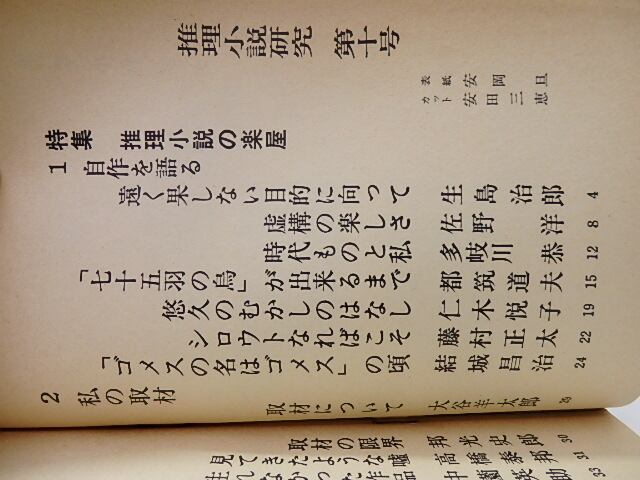 推理小説研究 第十号
表紙 安岡 旦
カット 安田三恵
特集 推理小説の楽屋
1 自作を語る
遠く果しない目的に向って 生島治郎 4
虚構の楽しさ 佐野洋 8
時代ものと私 多岐川恭 12
「七十五羽の烏」が出来るまで 都筑道夫 15
悠久のむかしのはなし 仁木悦子 19
シロウトなればこそ 藤村正太 22
「ゴメスの名はゴメス」の頃 結城昌治 24
2 私の取材
取材について 大谷羊太郎 26
取材の限界 邦光史郎 30
見てきたような嘘 高橋泰邦 31